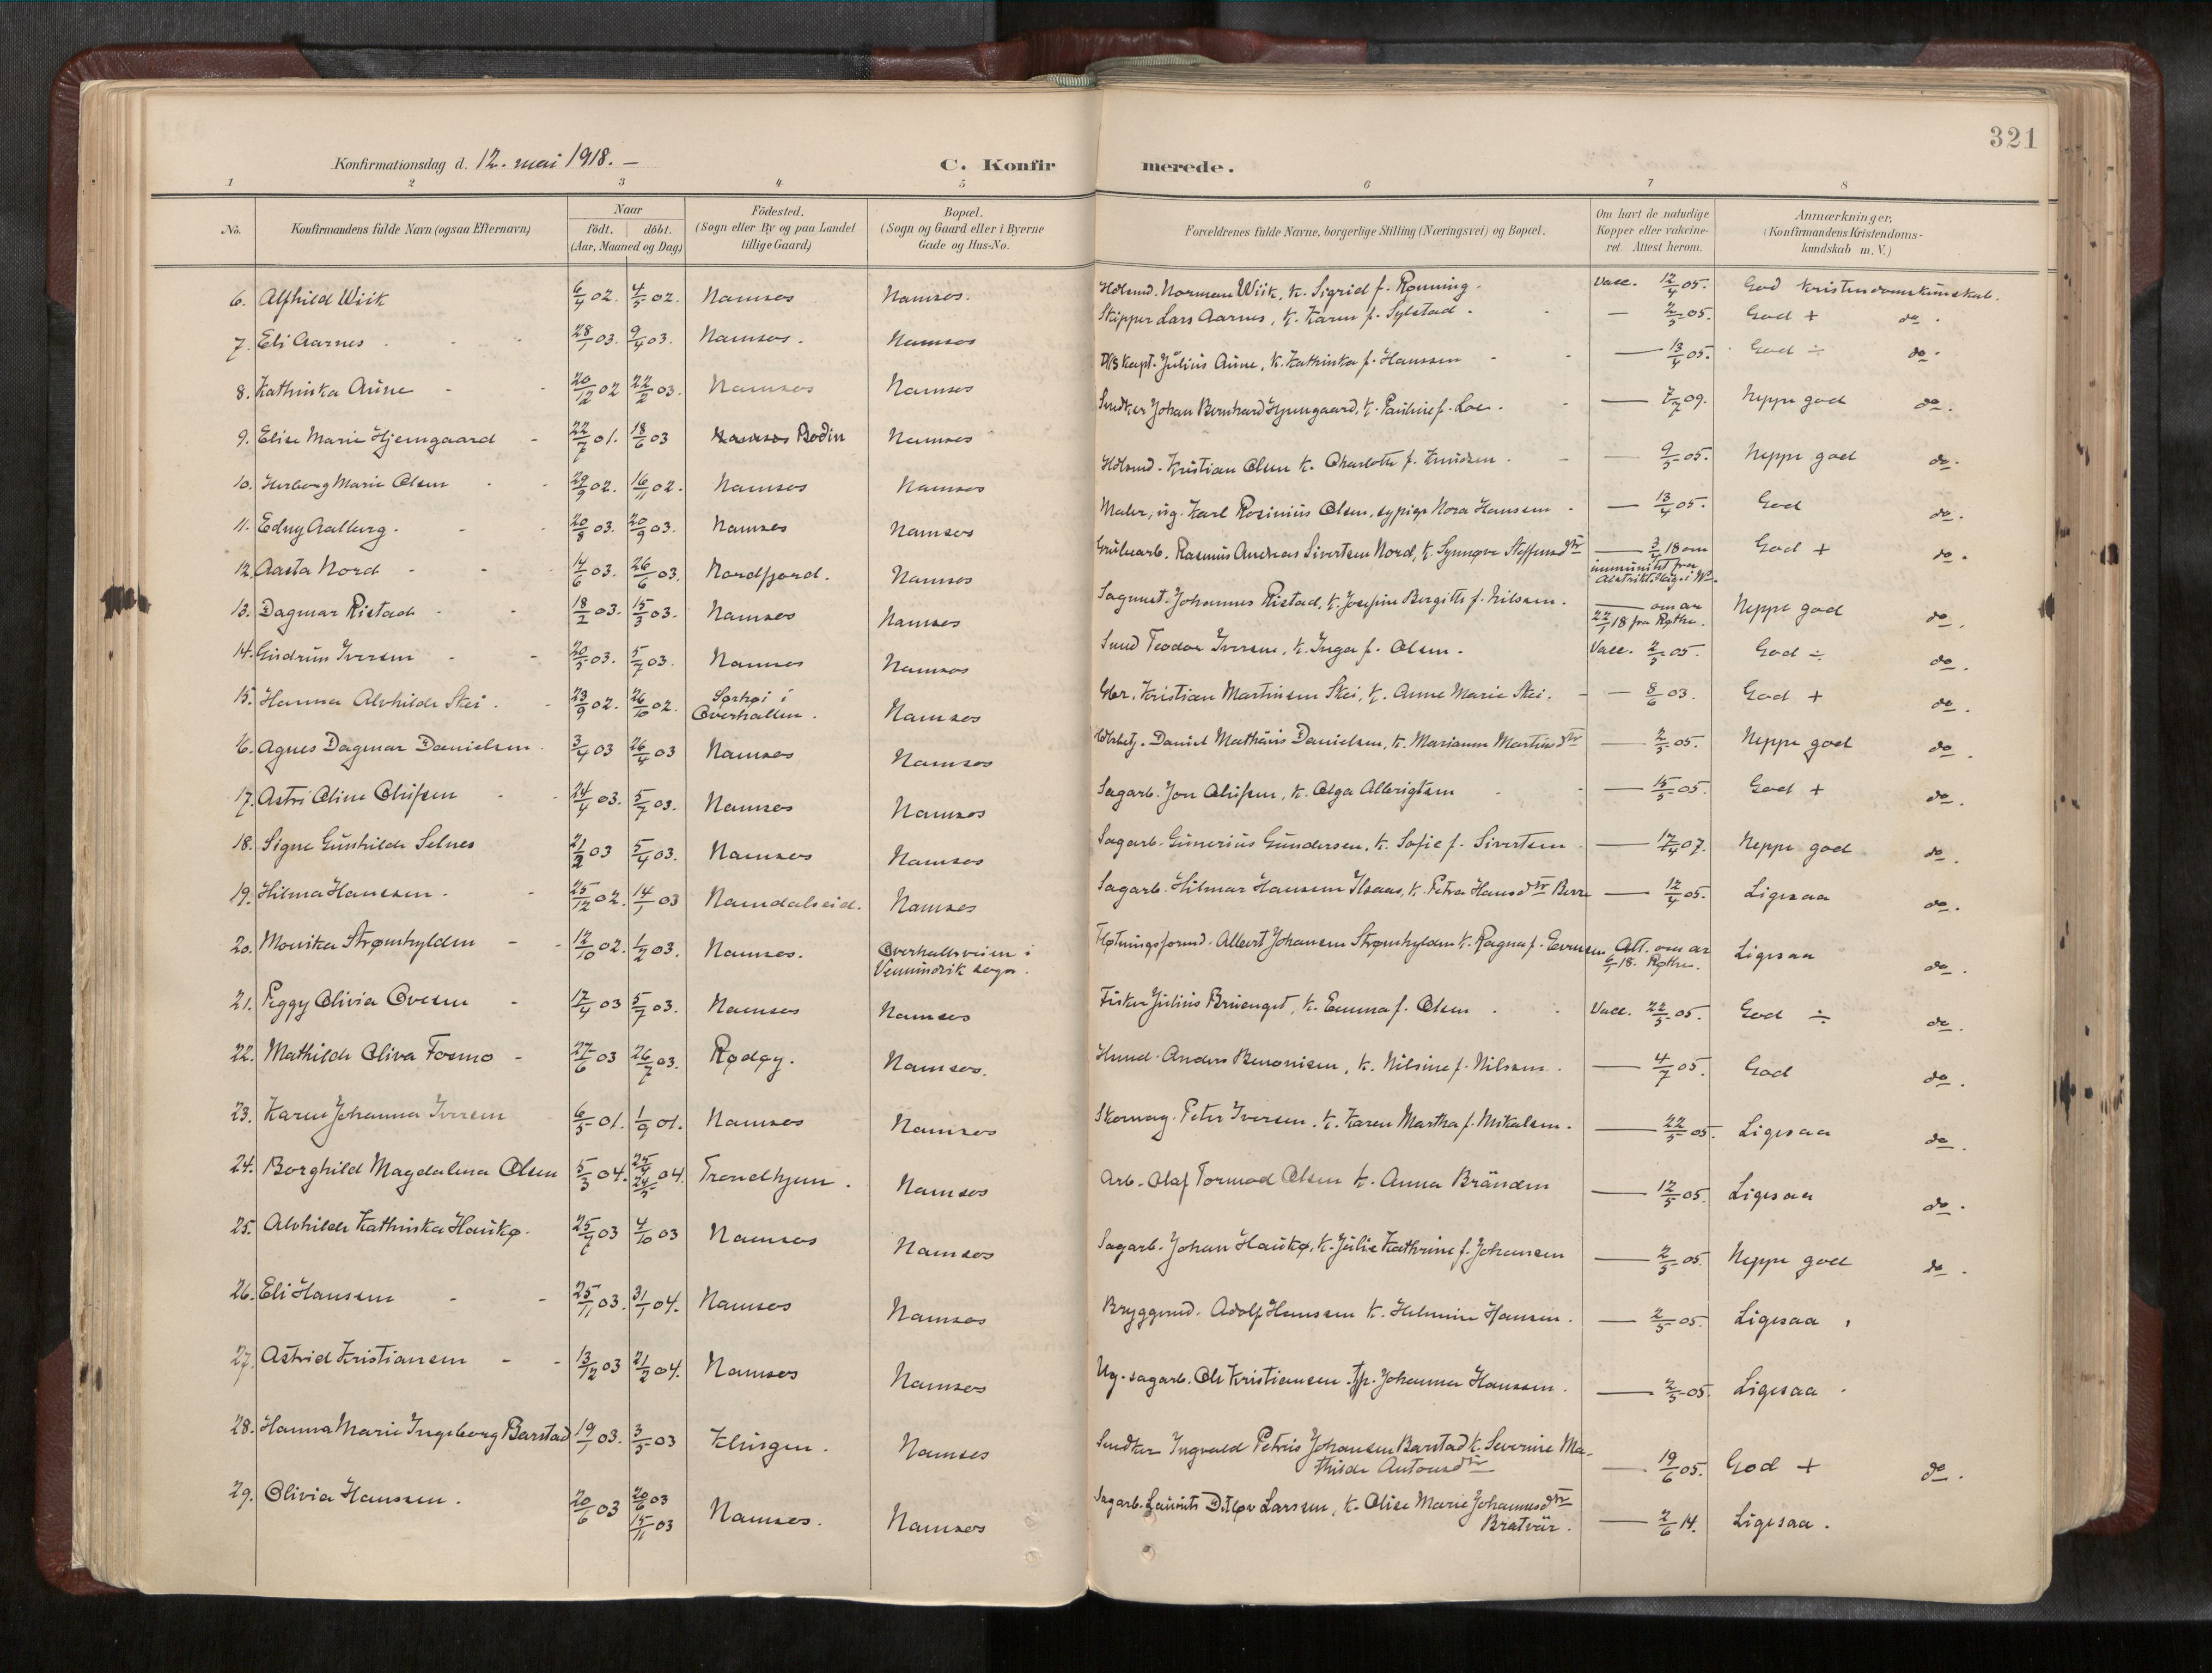 321
Konfirmationsdag d. 12. mai 1918. —
C. Konfirmerede.
1 2 3 4 5 6 7 8
No.
Konfirmandens fulde Navn (ogsaa Efternavn)
Naar
födt. döbt.
(Aar, Maaned og Dag)
Födested.
(Sogn eller By og paa Landet
tillige Gaard)
Bopæl.
(Sogn og Gaard eller i Byerne
Gade og Hus-No.
Forældrenes fulde Navne, borgerlige Stilling (Næringsvei) og Bopæl.
Om havt de naturlige
Kopper eller vakcine-
ret. Attest herom.
Anmærkninger,
(Konfirmandens Kristendoms-
kundskab m. V.)
6. Alfhild Wiik 6/4 02. 4/5 02. Namsos Namsos. Norman Wiik, k. Sigrid f. Rønning. Vacc. 12/4 05. God kristendomskunskab.
7. Eli Aarnes 28/1 03. 9/4 03. Namsos. Namsos Skipper Lars Aarnes, k. Karen f. Sylstad. — 2/5 05. God + do.
8. Kathinka Aune 20/12 02 22/2 03. Namsos Namsos D/S kapt. Julius Aune, k. Kathinka f. Hanssen — 13/4 05. God ÷ do.
9. Elise Marie Hjemgaard 22/7 01. 18/6 03 Namsos Bodin Namsos Snedker Johan Bernhard Hjemgaard, k. Pauline f. Loe. — 7/7 09. Neppe god do.
10. Herborg Marie Olsen 29/9 02. 16/11 02. Namsos Namsos Kristian Olsen k. Charlotte f. Knudsen. — 9/5 05. Neppe god do.
11. Edny Aalberg. 20/8 03. 20/9 03. Namsos Namsos Maler, ug. Karl Rosinius Olsen, sypige Nora Hansen. — 13/4 05. God do.
12. Aasta Nord 14/6 03. 26/6 03. Nordfjord. Namsos Grubearb. Rasmus Andreas Sivertsen Nord, k. Synnøve Steffensdtr — 3/4 18 om
immunitet fra
13. Dagmar Ristad 18/2 03. 15/3 03. Namsos Namsos Johannes Ristad, k. Josefine Bergitte f. Nilssen. — om ar
22/1 18 fra Røthe. Neppe god do.
14. Gudrun Iversen 20/5 03. 5/7 03. Namsos Namsos Smed Teodor Iversen, k. Inga f. Olsen. Vacc. 2/5 05. God ÷ do.
15. Hanna Alvhilde Skei. 23/9 02. 26/10 02. i
Overhallen. Namsos Kristian Martinsen Skei, k. Anne Marie Skei. — 8/6 03. God + do.
16. Agnes Dagmar Danielsen 3/4 03 26/4 03 Namsos Namsos Daniel Mathæus Danielsen, k. Marianne Martinsdtr — 2/5 05. Neppe god do.
17. Astri Oline Olufsen 24/4 03. 5/7 03. Namsos Namsos Sagarb. Jon Olufsen, k. Olga Albrigtsen — 15/5 05. God + do.
18. Signe Gunhilde Selnes 21/2 03 5/4 03. Namsos Namsos Sagarb. Gunerius Gundersen, k. Sofie f. Sivertsen — 17/4 07. Neppe god do.
19. Hilma Hanssen. 25/12 02. 14/1 03 Namdalseid. Namsos Sagarb. Hilmar Hansen, k. Petra Hansdtr Berre — 12/4 05. Ligesaa do.
20. Monika Strømhylden 12/10 02. 1/2 03. Namsos. Overhallsveien i
Vemundvik sogn. Fløtningsformd. Albert Johansen Strømhylden k. Ragna f. Evensen Att. om ar
6/1 18. Røthe. Ligesaa do.
21. Peggy Olivia Ovesen 17/4 03 5/7 03. Namsos Namsos Fisker Julius Bruenget, k. Emma f. Olsen. Vacc. 22/5 05. God ÷ do.
22. Mathilde Oliva Fosmo 27/6 03 26/7 03. Rødøy. Namsos. Anders Benonisen, k. Nilsine f. Nilssen. — 4/7 05. God do.
23. Karen Johanna Iversen 6/5 01. 1/9 01. Namsos Namsos Skomag. Peter Iversen. k. Karen Martha f. Mikalsen. — 22/5 05. Ligesaa do.
24. Borghild Magdalena Olsen 5/3 04. 25/4 24/5 04. Trondhjem. Namsos Arb. Olaf Tormod Olsen k. Anna Bränden — 12/5 05. Ligesaa do.
25. Alvhilde Kathinka Haukø. 25/7 03 4/10 03 Namsos Namsos Sagarb. Johan Haukø, k. Julie Kathrine f. Johansen — 2/5 05. Neppe god do.
26. Eli Hansen 25/11 03. 31/1 04. Namsos Namsos Bryggemd. Adolf Hanssen k. Helmine Hansen. — 2/5 05. Ligesaa
27. Astrid Kristiansen 13/12 03 21/2 04. Namsos Namsos Ug. sagarb. Ole Kristiansen tjp. Johanna Hanssen. — 2/5 05. Ligesaa
28. Hanna Marie Ingeborg Barstad 19/1 03. 3/5 03 Klingen. Namsos Snedker Ingvald Petrus Johansen Barstad k. Severine Ma-
thilde Antonsdtr — 19/6 05. God + do.
29. Olivia Hanssen. 20/6 03 20/6 03
15/11 03 Namsos. Namsos Sagarb. Laurits Ditløv Larssen, k. Olise Marie Johannesdtr
Bratvär. — 2/6 14. Ligesaa.